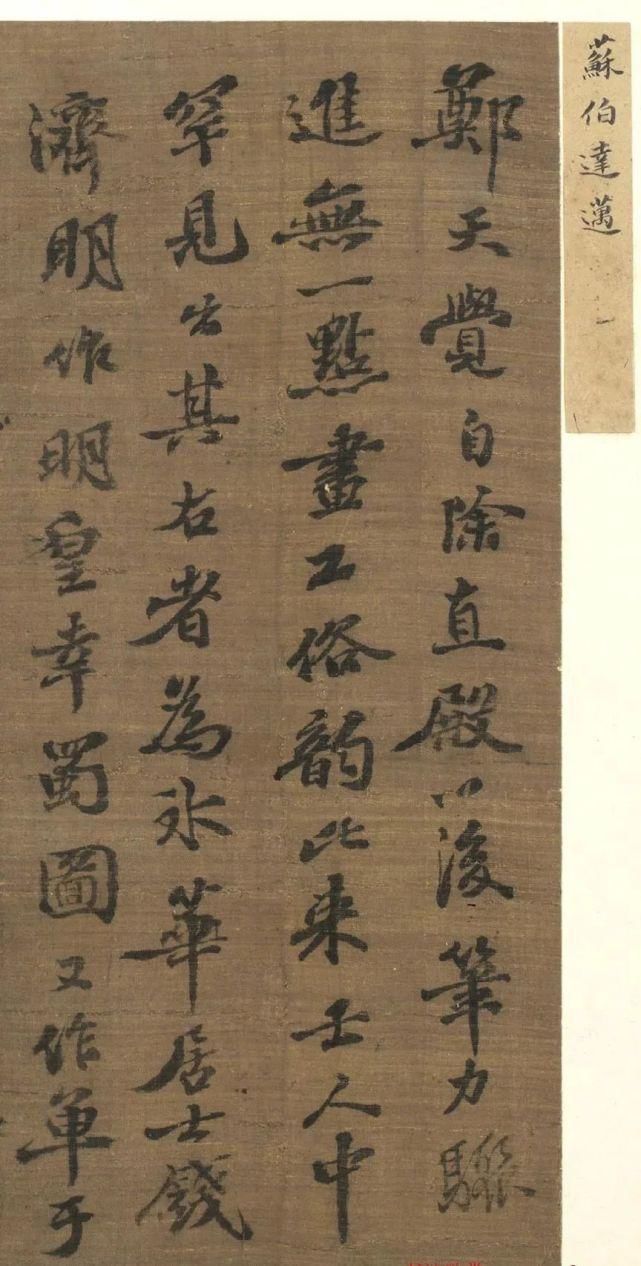 蘇伯達邁
鄭天覺自除直殿以後筆力驟
進無一點畫工俗韵比來士人中
罕見出其右者為冰華居士錢
濟明作明皇幸蜀圖又作單于